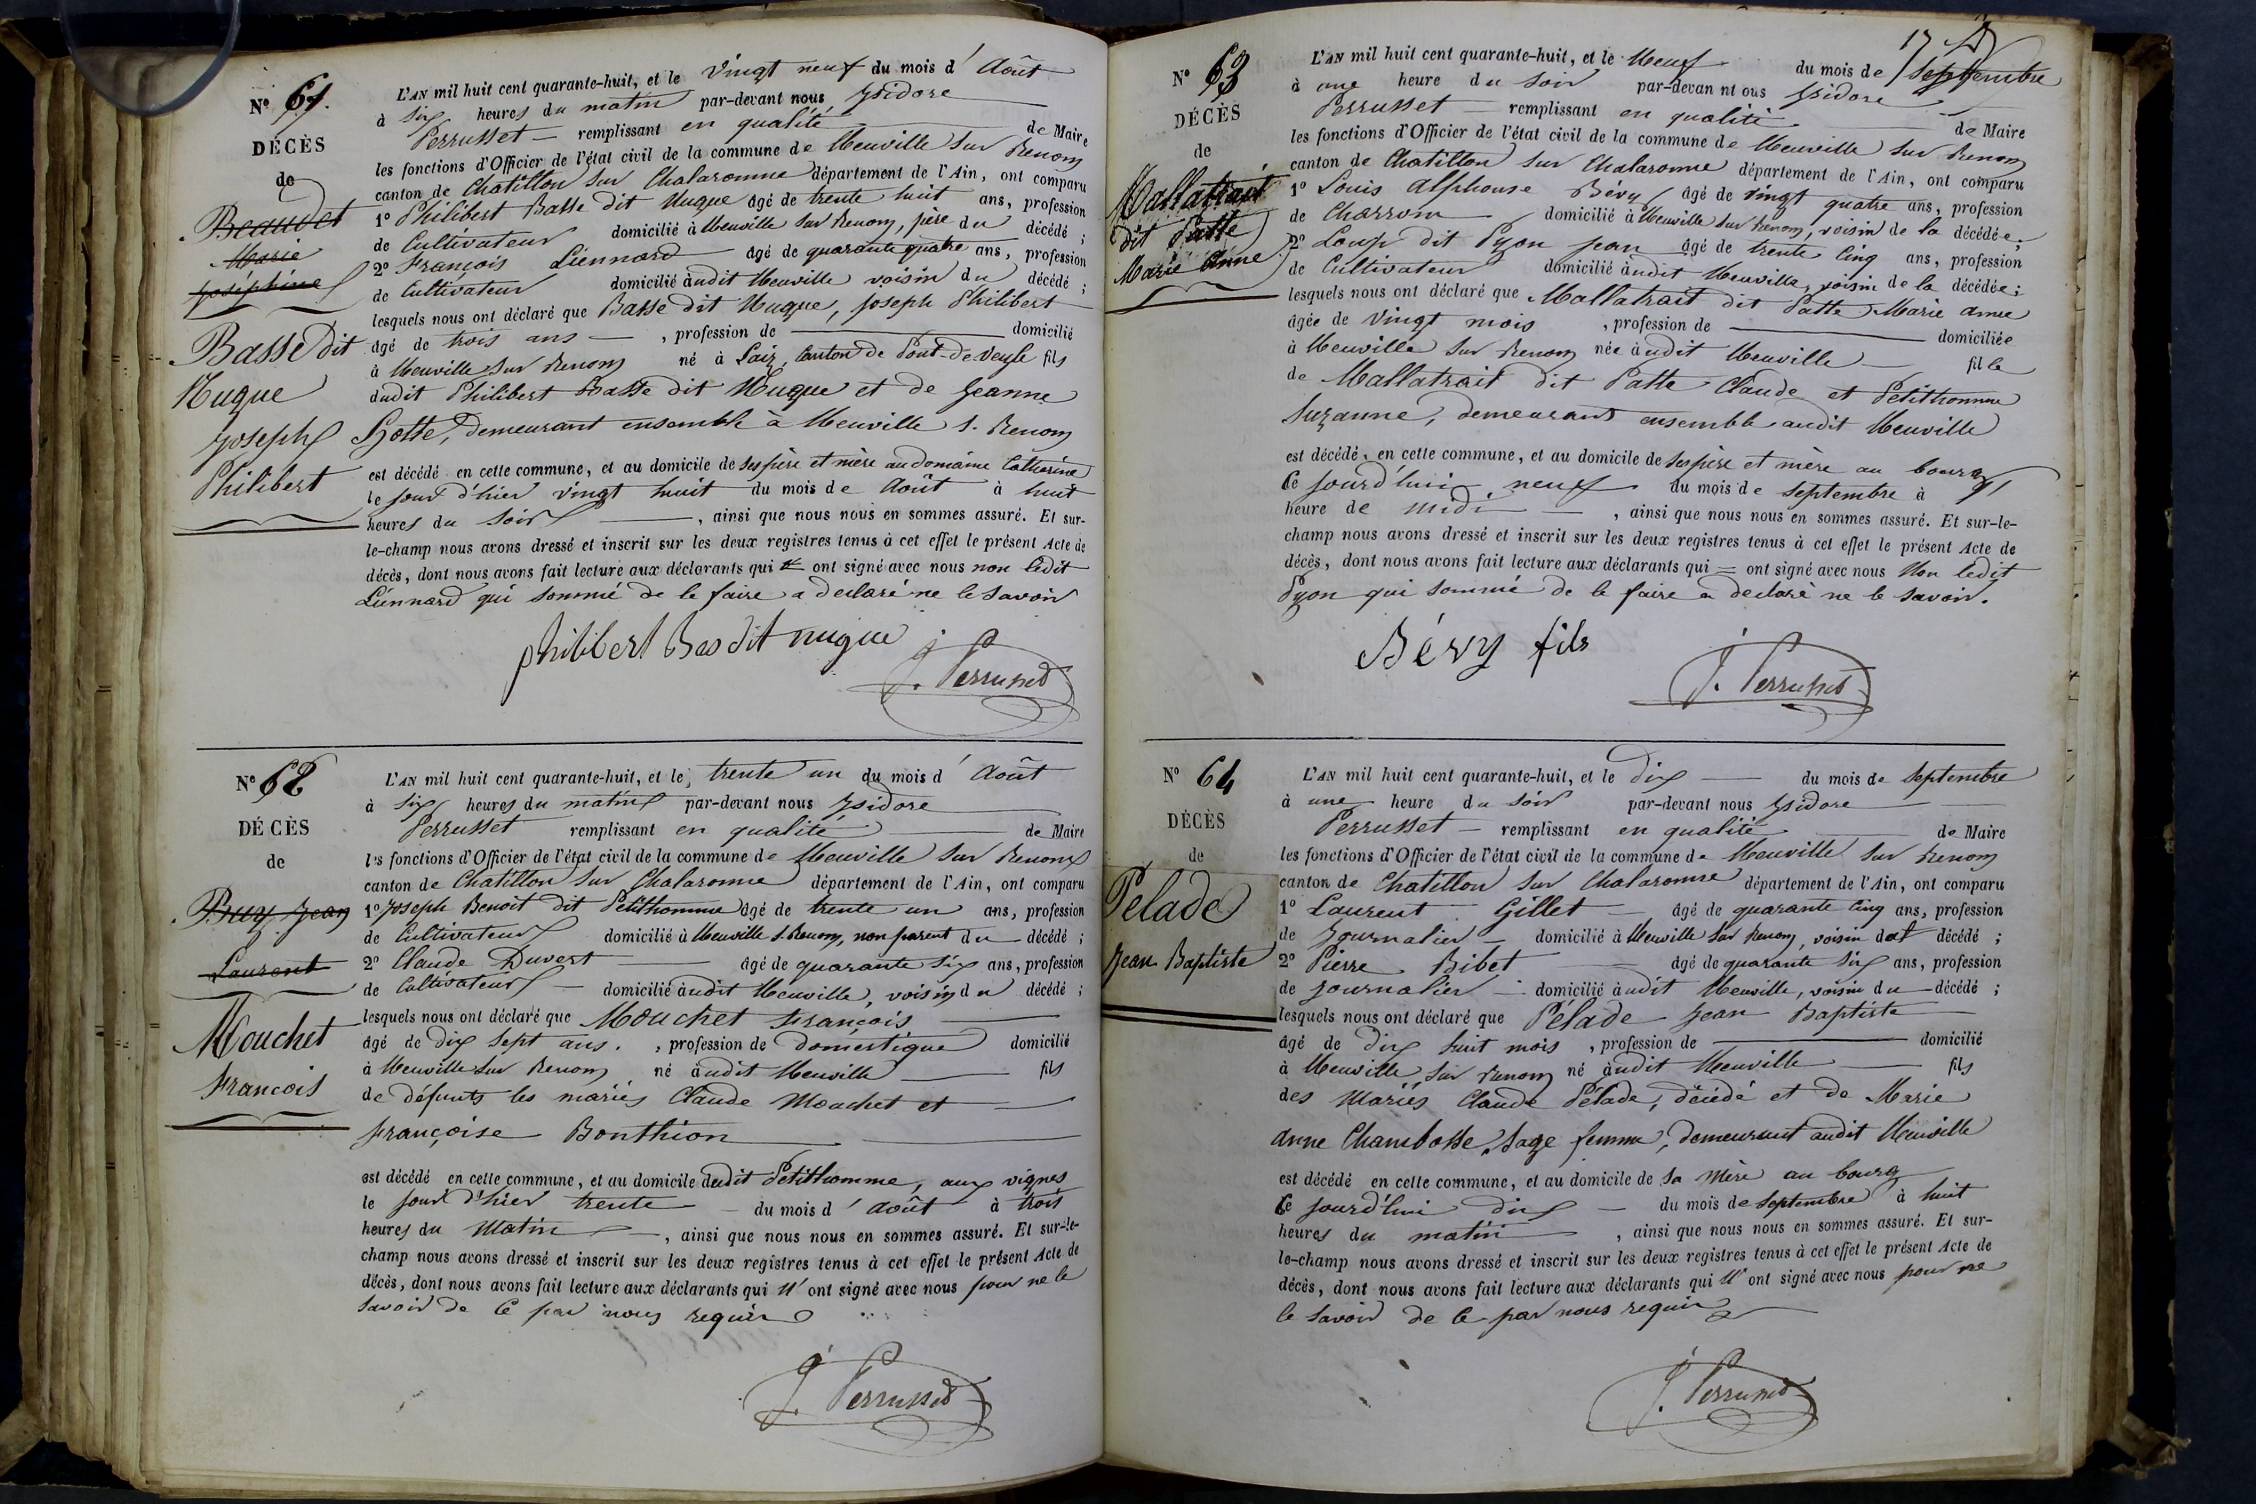 N° 61.
DÉCÈS
de
Beaudet
Marie
Joséphine
Basse dit
Nugue
Joseph
Philibert
L'AN mil huit cent quarante-huit, et le vingt neuf du mois d'Août
à six heures du matin par-devant nous Ysidore
Perrusset remplissant en qualité de Maire
les fonctions d'Officier de l'état civil de la commune de Neuville sur Renom
canton de Chatillon sur Chalaronne département de l'Ain, ont comparu
1° Philibert Basse dit Nugue âgé de trente huit ans, profession
de Cultivateur domicilié à Neuville sur Renom, père du décédé ;
2° François Liennard âgé de quarante quatre ans, profession
de Cultivateur domicilié audit Neuville voisin du décédé ;
lesquels nous ont déclaré que Basse dit Nugue, Joseph Philibert
âgé de trois ans , profession de domicilié
à Neuville sur Renom né à Laiz, Canton de Pont-de-Veyle fils
dudit Philibert Basse dit Nugue et de Jeanne
Hotte, demeurant ensemble à Neuville s. Renom
est décédé en cette commune, et au domicile de ses père et mère au domaine Catherine
le jour d'hier vingt huit du mois de Août à huit
heures du soir , ainsi que nous nous en sommes assuré. Et sur-
le-champ nous avons dressé et inscrit sur les deux registres tenus à cet effet le présent Acte de
décès, dont nous avons fait lecture aux déclarants qui ont signé avec nous non ledit
Liennard qui sommé de le faire a declaré ne le savoir
philibert Bas dit nugue
J. Perrusset
N° 62
DÉCÈS
de
Buy Jean
Laurent
Mouchet
François
L'AN mil huit cent quarante-huit, et le trente un du mois d'Août
à six heures du matin par-devant nous Ysidore
Perrusset remplissant en qualité de Maire
les fonctions d'Officier de l'état civil de la commune de Neuville sur Renom
canton de Chatillon sur Chalaronne département de l'Ain, ont comparu
1° Joseph Benoit dit Petithomme âgé de trente un ans, profession
de Cultivateur domicilié à Neuville s. Renom, non parent du décédé ;
2° Claude Duvert âgé de quarante six ans, profession
de Cultivateur domicilié audit Neuville, voisin du décédé ;
lesquels nous ont déclaré que Mouchet François
âgé de dix sept ans. , profession de domestique domicilié
à Neuville sur Renom né audit Neuville fils
de défunts les mariés Claude Mouchet et
Françoise Bonthion
est décédé en cette commune, et au domicile dudit Petithomme, aux vignes
le jour d'hier trente du mois d'Août à trois
heures du matin , ainsi que nous nous en sommes assuré. Et sur-le-
champ nous avons dressé et inscrit sur les deux registres tenus à cet effet le présent Acte de
décès, dont nous avons fait lecture aux déclarants qui n'ont signé avec nous pour ne le
savoir de ce par nous requis
J. Perrusset
17
N° 63
DÉCÈS
de
Mallatrait
dit Patte
Marie Anne
L'AN mil huit cent quarante-huit, et le Neuf du mois de Septembre
à une heure du soir par-devan nt ous Ysidore
Perrusset remplissant en qualité de Maire
les fonctions d'Officier de l'état civil de la commune de Neuville sur Renom
canton de Chatillon sur Chalaronne département de l'Ain, ont comparu
1° Louis Alphonse Bévy âgé de vingt quatre ans, profession
de Charron domicilié à Neuville sur Renom, voisin de la décédée ;
2° Loup dit Pyon jean âgé de trente cinq ans, profession
de Cultivateur domicilié audit Neuville, voisin de la décédée ;
lesquels nous ont déclaré que Mallatrait dit Patte Marie anne
âgée de vingt mois , profession de domiciliée
à Neuville sur Renom née audit Neuville fille
de Mallatrait dit Patte Claude et Petithomme
Suzanne, demeurant ensemble audit Neuville
est décédé, en cette commune, et au domicile de ses père et mère au bourg
ce jourd'hui neuf du mois de septembre à
heure de midi , ainsi que nous nous en sommes assuré. Et sur-le-
champ nous avons dressé et inscrit sur les deux registres tenus à cet effet le présent Acte de
décès, dont nous avons fait lecture aux déclarants qui ont signé avec nous Non ledit
Pyon qui sommé de le faire a declaré ne le savoir.
Bévy fils
J. Perrusset
N° 64
DÉCÈS
de
Pelade
Jean Baptiste
L'AN mil huit cent quarante-huit, et le dix du mois de septembre
à une heure du soir par-devant nous Ysidore
Perrusset remplissant en qualité de Maire
les fonctions d'Officier de l'état civil de la commune de Neuville sur Renom
canton de Chatillon sur Chalaronne département de l'Ain, ont comparu
1° Laurent Gillet âgé de quarante cinq ans, profession
de Journalier domicilié à Neuville sur Renom, voisin du décédé ;
2° Pierre Bibet âgé de quarante six ans, profession
de journalier domicilié audit Neuville, voisin du décédé ;
lesquels nous ont déclaré que Pélade Jean Baptiste
âgé de dix huit mois , profession de domicilié
à Neuville sur Renom né audit Neuville fils
des Mariés Claude Pélade, décédé et de Marie
anne Chambosse, sage femme, demeurant audit Neuville
est décédé en cette commune, et au domicile de sa mère au bourg
ce jourd'hui dix du mois de septembre à huit
heures du matin , ainsi que nous nous en sommes assuré. Et sur-
le-champ nous avons dressé et inscrit sur les deux registres tenus à cet effet le présent Acte de
décès, dont nous avons fait lecture aux déclarants qui n'ont signé avec nous pour ne
le savoir de ce par nous requis
J. Perrusset